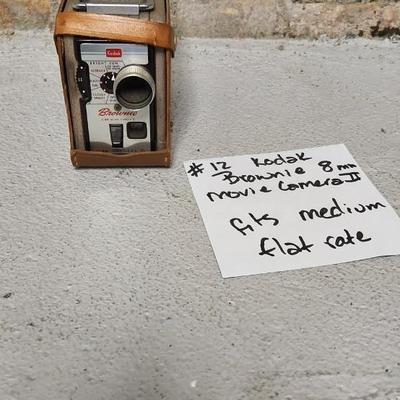 Kodak
Brownie
#12 Kodak
Brownie 8mm
movie camera II
fits medium
flat rate